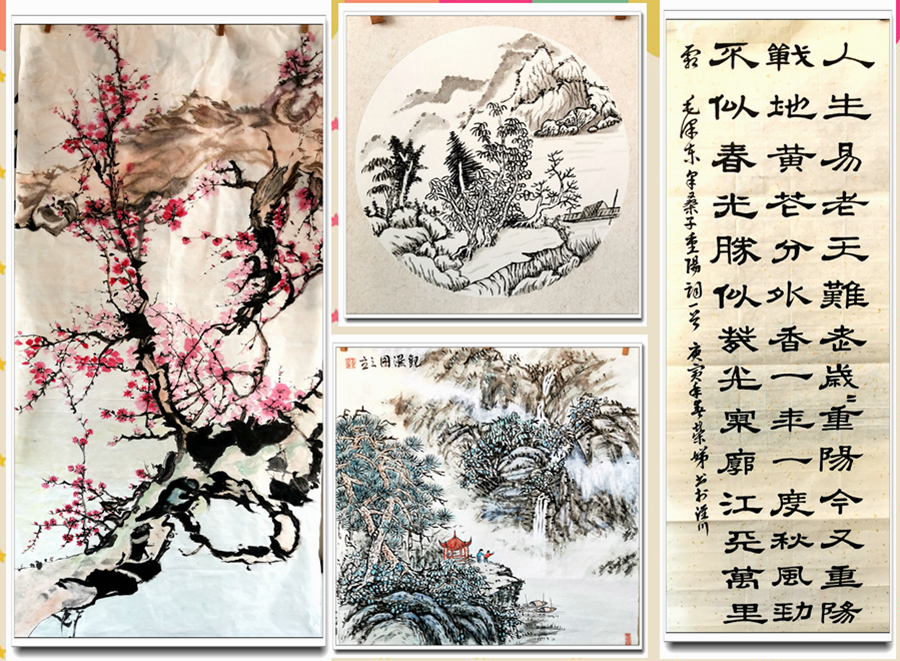 观瀑图
人生易老天難老歲〻重陽今又重陽
戰地黄花分外香一年一度秋風勁
不似春光勝似春光寥廓江天萬里
霜 毛澤东采桑子重陽词一首 庚寅年春榮娣书於